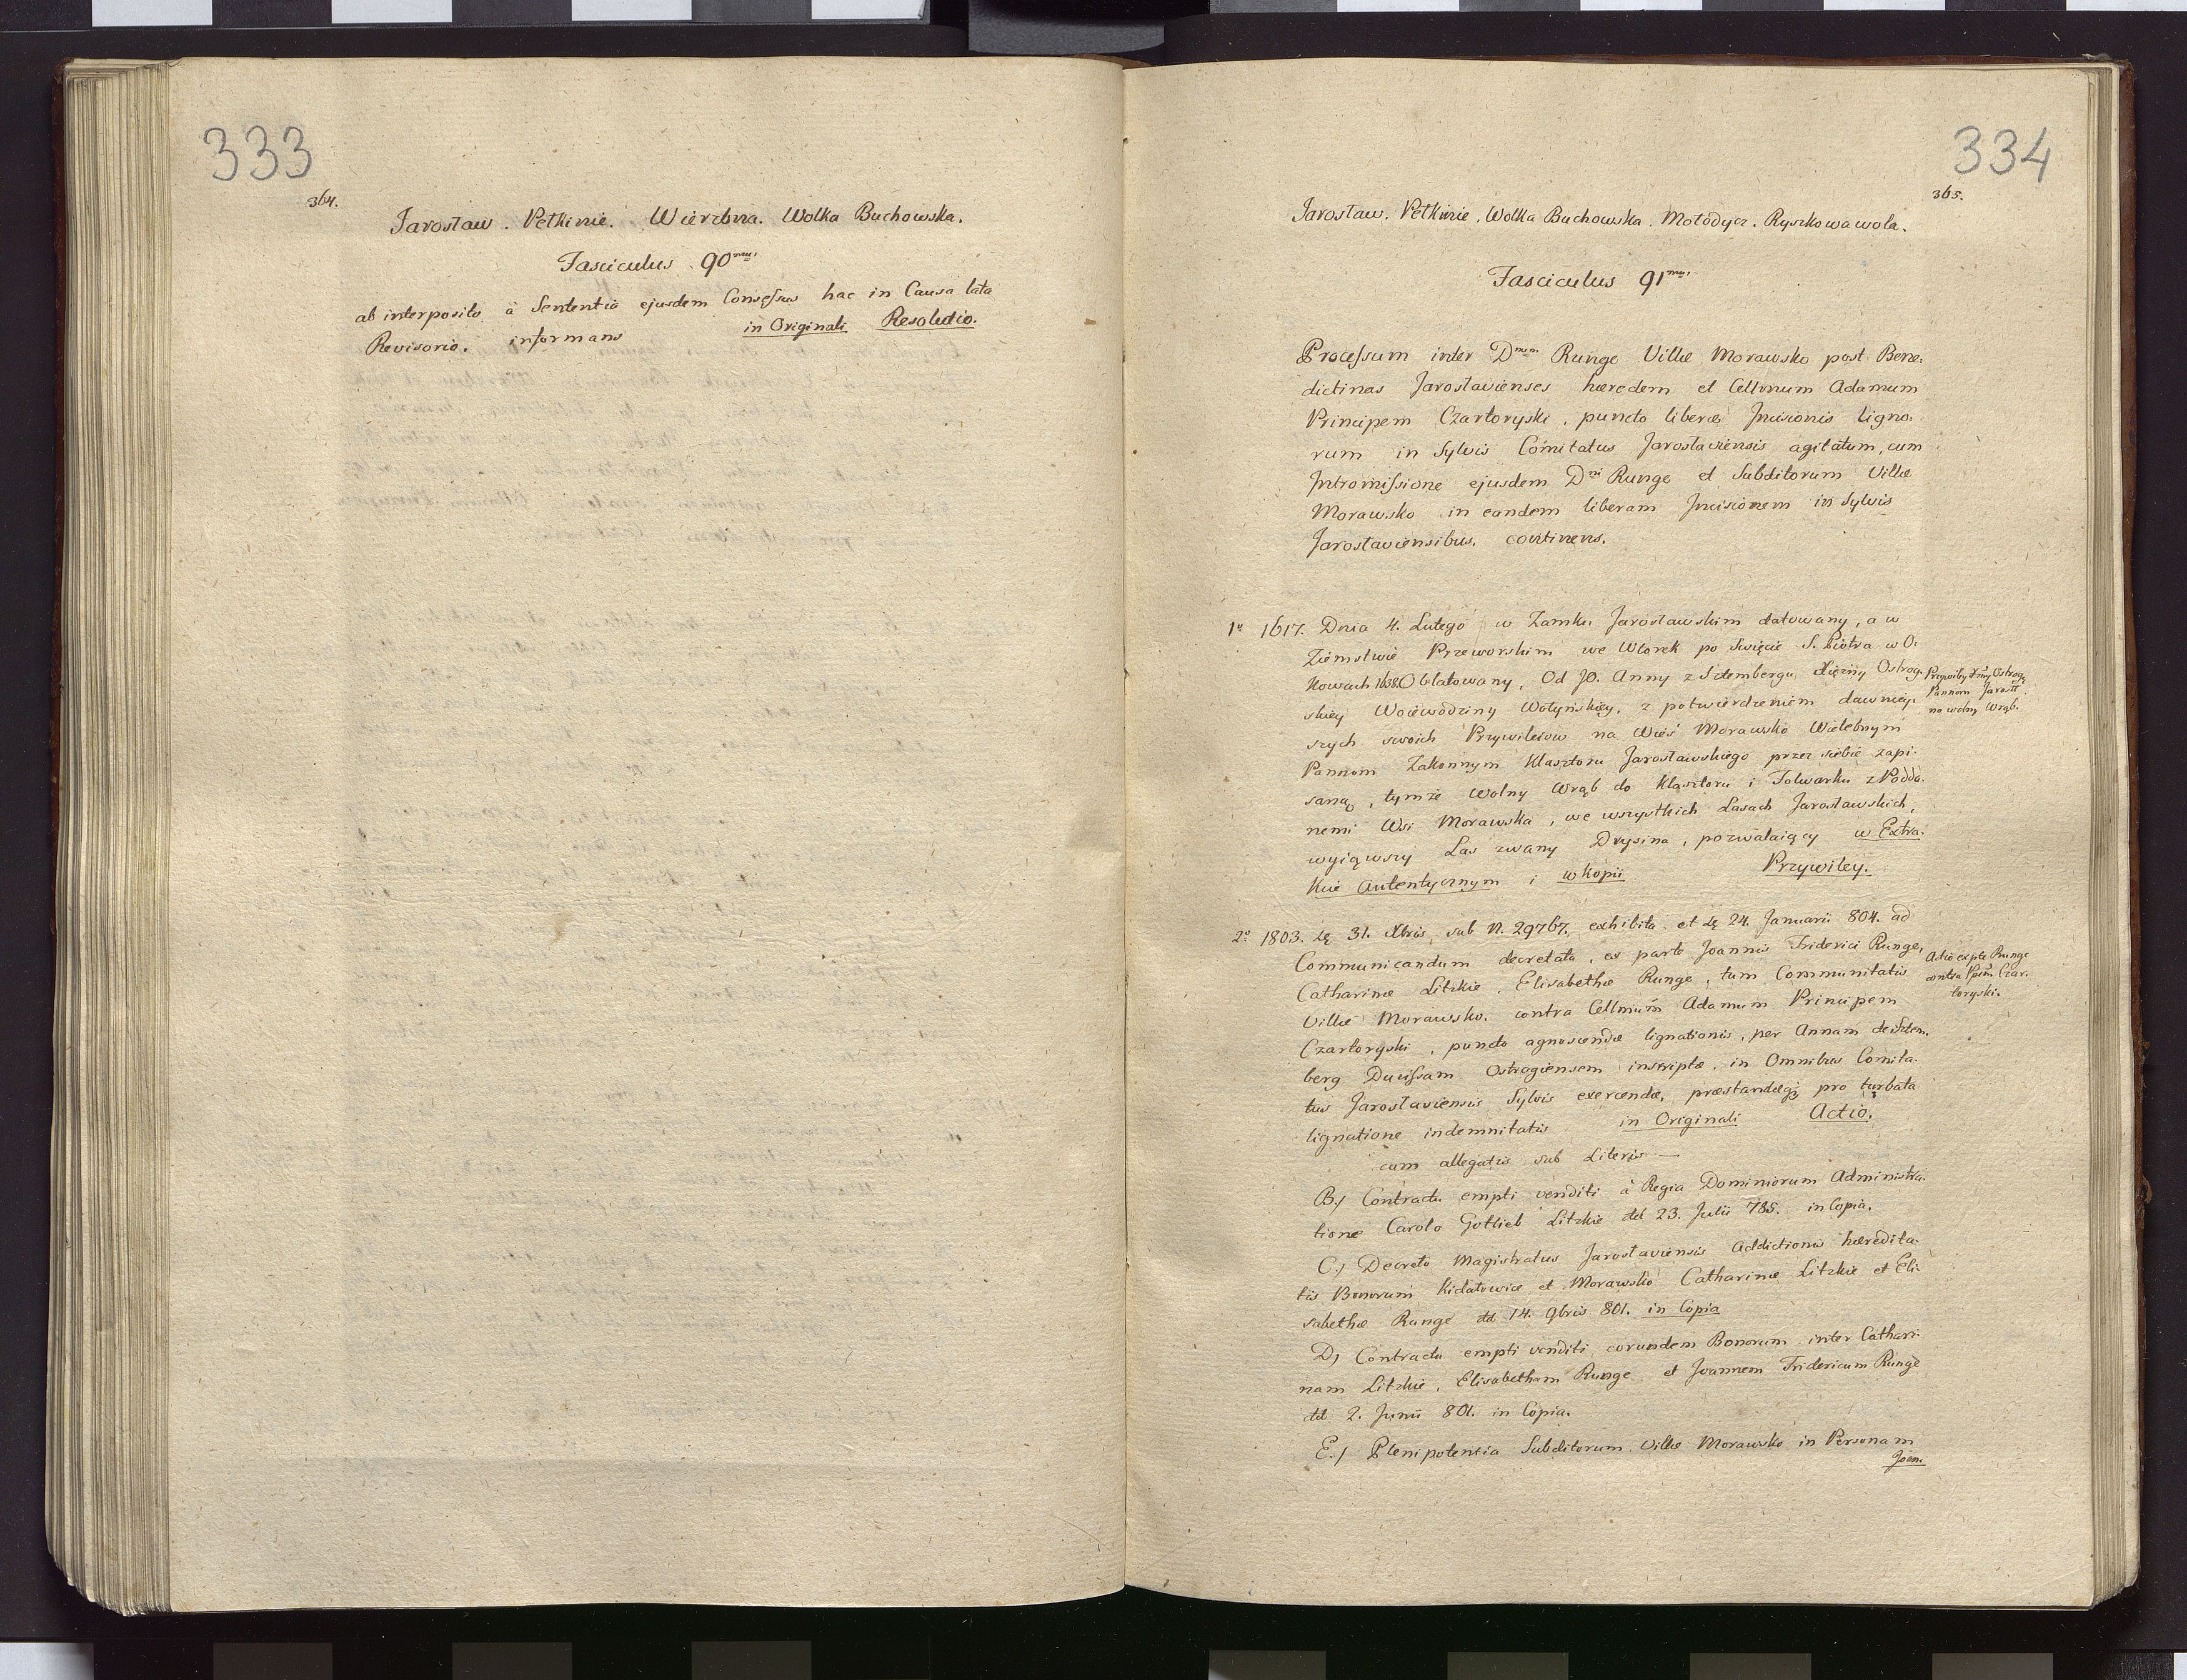 333
364.
Jarosław. Pełkinie. Wierzbna. Wolka Buchowska.
Fasciculus 90mus
ab interposito à Sententia ejusdem Consessus hac in Causa lata
Revisorio. informans in Originali Resolutio.
334
365.
Jarosław. Pełkinie. Wolka Buchowska. Mołodycz. Ryszkowawola.
Fasciculus 91mus
Processum inter Dnum Runge Villæ Morawsko post Bene:
dictinas Jarosłavienses hæredem et Cellmum Adamum
Principem Czartoryski, puncto liberæ Jncisionis ligno:
rum in Sylvis Comitatus Jarosłaviensis agitatum, cum
Jntromissione ejusdem Dni Runge et Subditorum Villæ
Morawsko in eandem liberam Jncisionem in Sylvis
Jarosłaviensibus. continens.
1o 1617. Dnia 4. Lutego w Zamku Jarosławskim datowany, a w
Ziemstwie Przeworskim we Wtorek po Swięcie S. Piotra w O:
kowach 1638. Oblatowany, Od JO. Anny z Sztembergu Xiężny Ostrog:
skiey Woiewodziny Wołyńskiey, z potwierdzeniem dawniey:
szych swoich Przywileiow na Wieś Morawsko Wielebnym
Pannom Zakonnym Klasztoru Jarosławskiego przez siebie zapi:
saną, tymże Wolny Wrąb do Klasztoru i Folwarku z Podda:
nemi Wsi Morawska, we wszystkich Lasach Jarosławskich,
wyiąwszy Las zwany Drysina, pozwalaiący w Extra:
kcie Autentycznym i w kopii Przywiley.
Przywiley Xny Ostrog:
Pannom Jarosł.
na wolny Wrąb.
2o 1803. De 31. Xbris sub N. 29767. exhibita et De 24. Januarii 804. ad
Communicandum decretata, ex parte Joannis Friderici Runge,
Catharinæ Litzkie, Elisabethæ Runge, tum Communitatis
Villæ Morawsko. contra Cellmum Adamum Principem
Czartoryski, puncto agnoscendæ lignationis, per Annam de Sztem:
berg Ducissam Ostrogiensem inscriptæ, in Omnibus Comita:
tus Jarosłaviensis Sylvis exercendæ, præstandæq3 pro turbata
lignatione indemnitatis in Originali Actio.
Actio ex pte Runge
contra Ppem Czar:
toryski.
cum allegatis sub Literis —
B.) Contractu empti venditi à Regia Dominiorum Administra:
tione Carolo Gotlieb Litzkie dd 23. Julii 785. in Copia.
C.) Decreto Magistratus Jarosłaviensis Addictionis hæredita:
tis Bonorum Kidałowice et Morawsko Catharinæ Litzkie et Eli:
sabethæ Runge dd 14. 9bris 801. in Copia
D) Contractu empti venditi eorundem Bonorum inter Cathari:
nam Litzkie, Elisabetham Runge et Joannem Fridericum Runge
dd 2. Junii 801. in Copia.
E.) Plenipotentia Subditorum Villæ Morawsko in Personam
Joan: